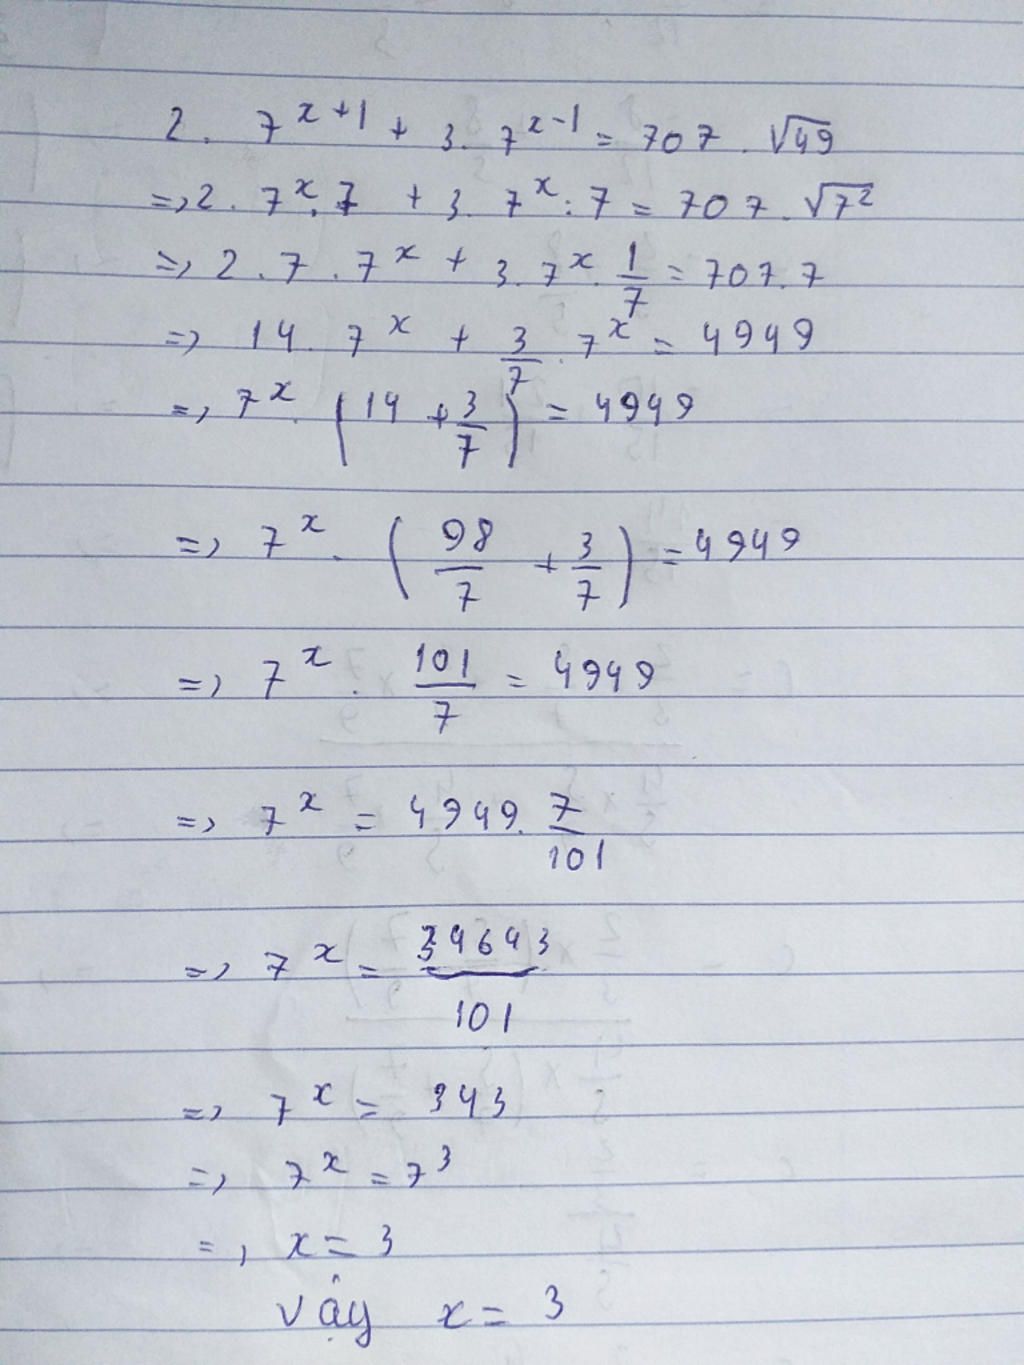 2. 7^{x+1} + 3. 7^{x-1} = 707. √49
=> 2. 7^x. 7 + 3. 7^x : 7 = 707. √7²
=> 2. 7. 7^x + 3. 7^x. 1/7 = 707. 7
=> 14. 7^x + 3/7. 7^x = 4949
=> 7^x. (14 + 3/7) = 4949
=> 7^x. (98/7 + 3/7) = 4949
=> 7^x. 101/7 = 4949
=> 7^x = 4949. 7/101
=> 7^x = 34643/101
=> 7^x = 343
=> 7^x = 7^3
=> x = 3
Vậy x = 3